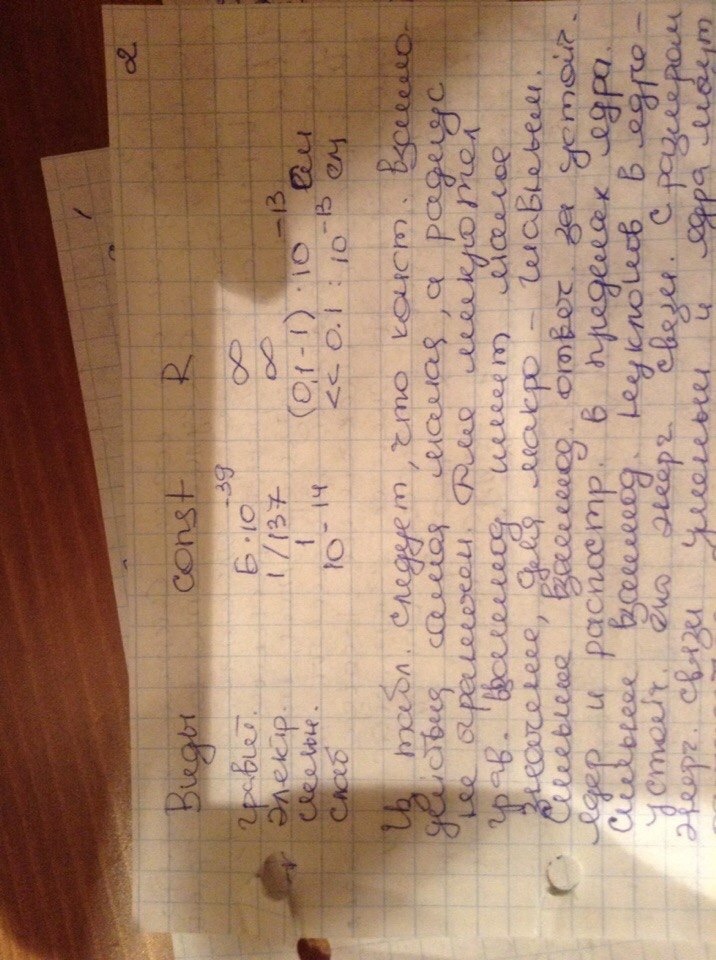 2
Виды const R
гравит. 6·10⁻³⁹ ∞
электр. 1/137 ∞
сильн. 1 (0,1-1)·10⁻¹³ см
слаб 10⁻¹⁴ << 0.1 : 10⁻¹³ см
Из табл. следует, что конст. взаимо-
действия самая малая, а радиус
не ограничен. Для микротел
грав. взаимод. имеет малое
значение, для макро – главным.
Сильные взаимод. отвеч. за устойч.
ядер и распростр. в пределах ядра.
Сильнее взаимод. нуклонов в ядре –
устойч. его энерг. связи. С размером
энерг. связи уменьш и ядра могут
1